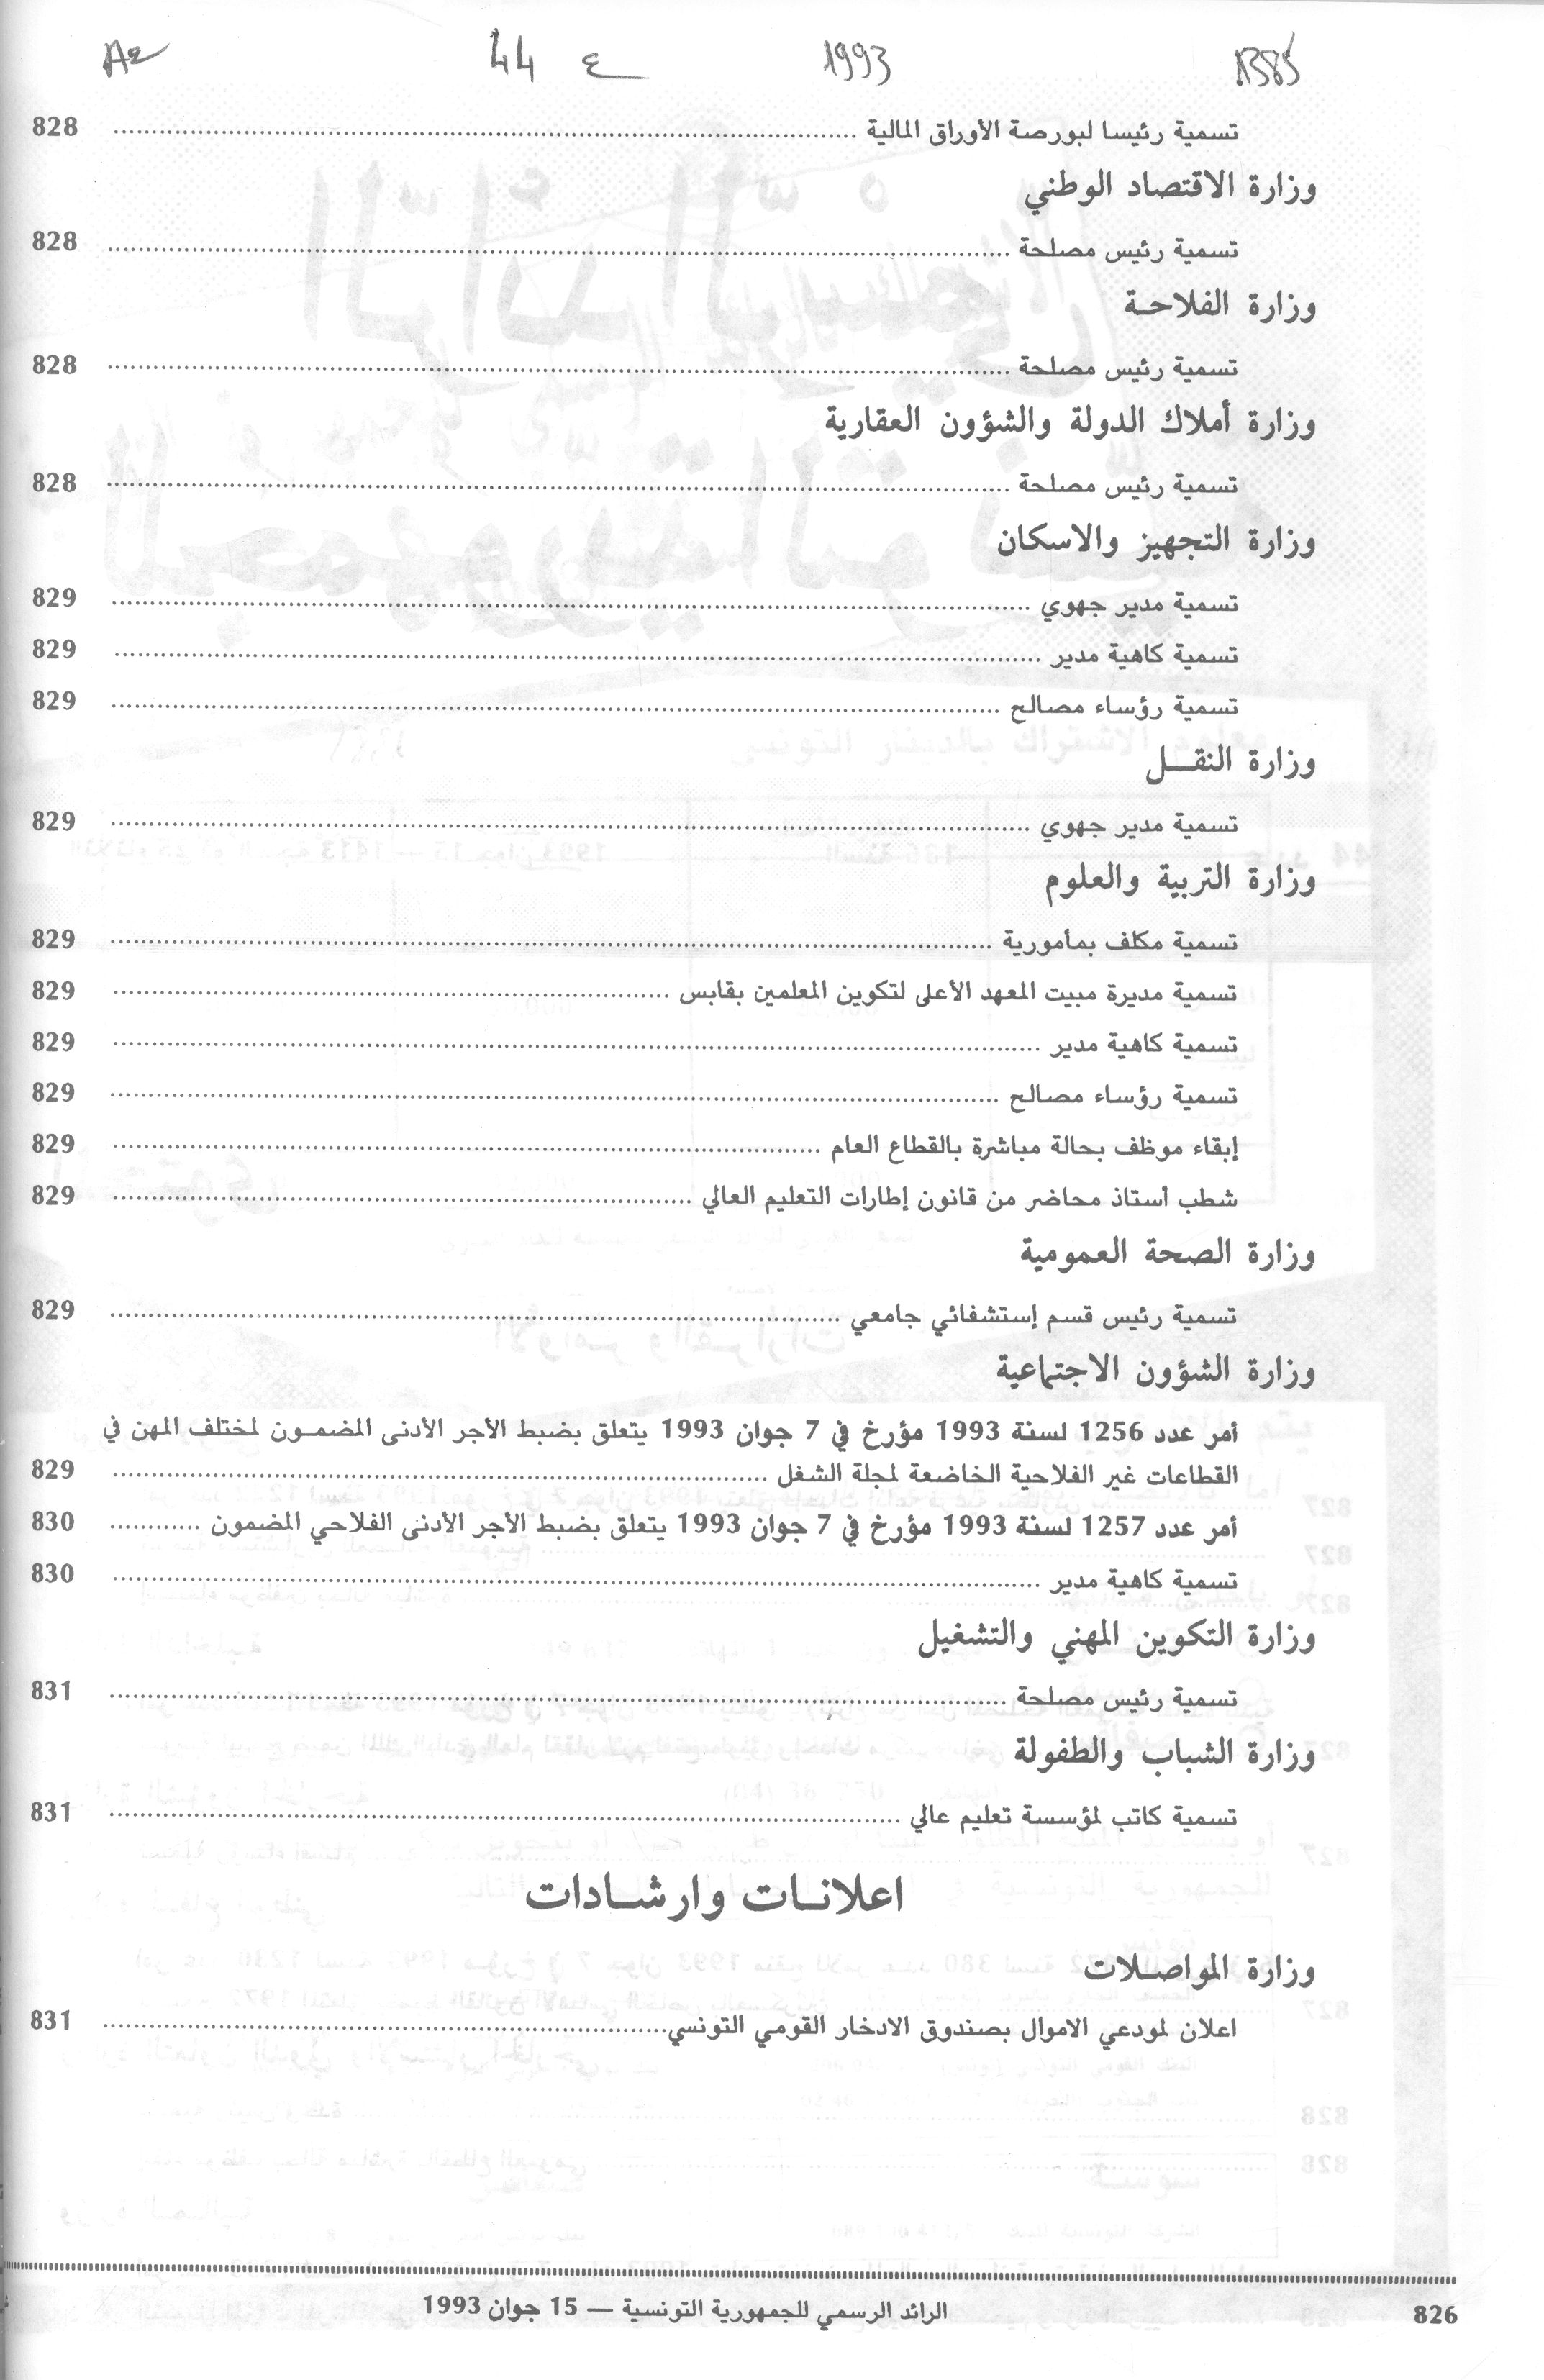 1993 ع 44
تسمية رئيسا لبورصة الأوراق المالية ........ 828
وزارة الاقتصاد الوطني
تسمية رئيس مصلحة ........ 828
وزارة الفلاحـة
تسمية رئيس مصلحة ........ 828
وزارة أملاك الدولة والشؤون العقارية
تسمية رئيس مصلحة ........ 828
وزارة التجهيز والاسكان
تسمية مدير جهوي ........ 829
تسمية كاهية مدير ........ 829
تسمية رؤساء مصالح ........ 829
وزارة النقـــل
تسمية مدير جهوي ........ 829
وزارة التربية والعلوم
تسمية مكلف بمأمورية ........ 829
تسمية مديرة مبيت المعهد الأعلى لتكوين المعلمين بقابس ........ 829
تسمية كاهية مدير ........ 829
تسمية رؤساء مصالح ........ 829
إبقاء موظف بحالة مباشرة بالقطاع العام ........ 829
شطب أستاذ محاضر من قانون إطارات التعليم العالي ........ 829
وزارة الصحة العمومية
تسمية رئيس قسم إستشفائي جامعي ........ 829
وزارة الشؤون الاجتماعية
أمر عدد 1256 لسنة 1993 مؤرخ في 7 جوان 1993 يتعلق بضبط الأجر الأدنى المضمـون لمختلف المهن في
القطاعات غير الفلاحية الخاضعة لمجلة الشغل ........ 829
أمر عدد 1257 لسنة 1993 مؤرخ في 7 جوان 1993 يتعلق بضبط الأجر الأدنى الفلاحي المضمون ........ 830
تسمية كاهية مدير ........ 830
وزارة التكوين المهني والتشغيل
تسمية رئيس مصلحة ........ 831
وزارة الشباب والطفولة
تسمية كاتب لمؤسسة تعليم عالي ........ 831
اعلانـات وارشـادات
وزارة المواصـلات
اعلان لمودعي الاموال بصندوق الادخار القومي التونسي ........ 831
826 الرائد الرسمي للجمهورية التونسية — 15 جوان 1993